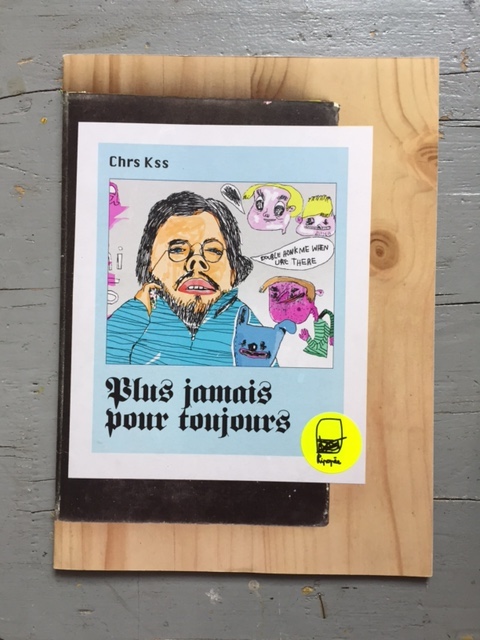 Chrs Kss
DOUBLE HONK ME WHEN
URE THERE
Plus jamais
pour toujours
Ripopée